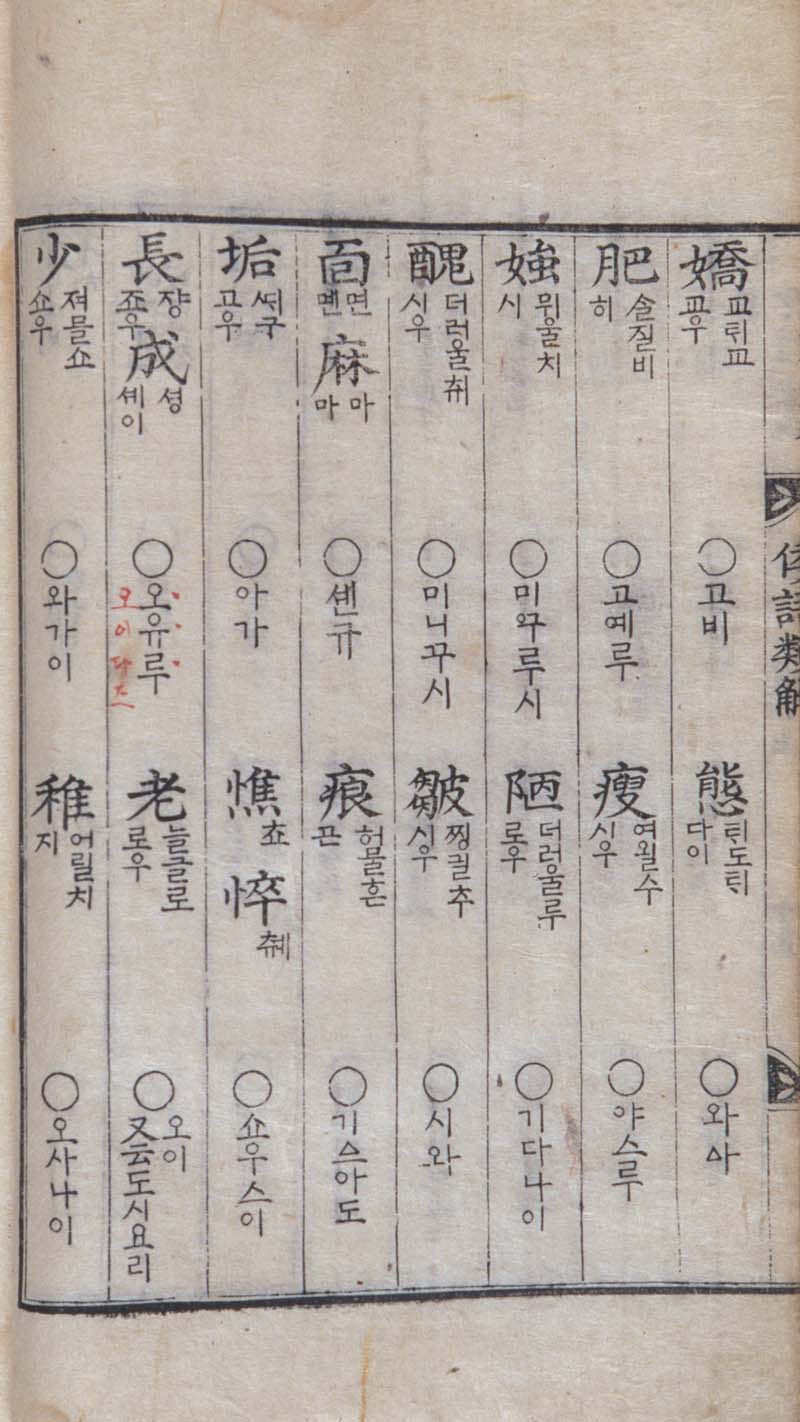 倭語類解
嬌 교ᄐᆡ교 교우 ○고비 態 ᄐᆡ도ᄐᆡ 다이 ○와ᅀᅡ
肥 ᄉᆞᆯ질비 히 ○고예루 瘦 여윌수 시우 ○야스루
媸 뮈울치 시 ○미ᄭᅮ루시 陋 더러울루 로우 ○기다나이
醜 더러울취 시우 ○미니ᄭᅮ시 皺 ᄶᅵᆼ긜추 시우 ○시와
面 면 멘 麻 마 마 ○셴규 痕 허믈흔 곤 ○기스아도
垢 ᄯᆡ구 고우 ○아가 憔 쵸 悴 췌 ○쇼우스이
長 쟝 죠우 成 셩 셰이 ○오유루 오이다즈 老 늘글로 로우 ○오이 又云도시요리
少 져믈쇼 쇼우 ○와가이 稚 어릴치 지 ○오사나이